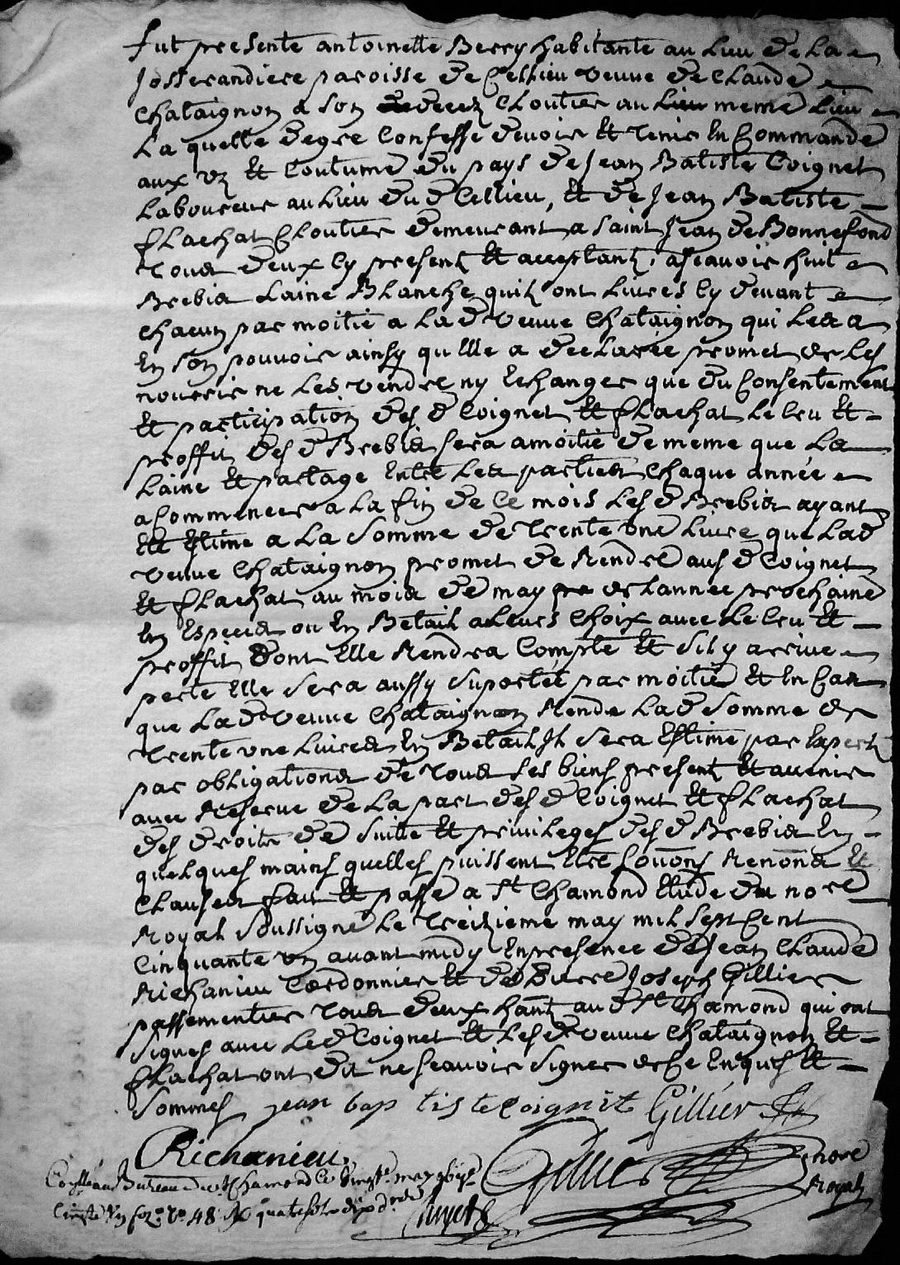 fut presente antoinette Berry habitante au Lieu de La
Josserandiere paroisse de Cellieu veuve de Claude
Chataignon a son deceds Cloutier au Lieu meme Lieu
La quelle de gre Confesse devoir et tenir En Commande
aux uz et Coutume du pays de Jean Batiste Coignet
Laboureur au Lieu du d Cellieu, et de Jean Batiste
flachat Cloutier demeurant a saint Jean de Bonnefond
tous deux Cy present et acceptant, a sçeavoir huit
Brebis Laine Blanche quils ont Livres Cy devant
chacun par moitie a La de veuve Chataignon qui Les a
En son pouvoir ainsy qu'elle a declaree promet de les
nourrir ne Les vendre ny Echanger que du Consentement
et participation des d Coignet et flachat Le Cru et
proffit des d Brebis sera a moitie de meme que La
Laine et partage Entre Les parties Chaque année
a Commencer a La fin de Ce mois Les d Brebis ayant
Ete Estime a La somme de trente une Livre que La d
veuve Chataignon promet de Rendre aus d Coignet
et flachat au mois de may de Lannee prochaine
En Especes ou En Betail a Leurs Choix avec Le Cru et
proffit dont Elle Rendra Compte et sil y arrive
perte Elle sera aussy suportet par moitie et En Cas
que La de veuve Chataignon Rende La d somme de
trente une Livres En Betail Jl sera Estime par Expert
par obligations de tous ses biens present et avenir
avec Reserve de La part des d Coignet et flachat
des droits de suitte et privileges des d Brebis En
quelques mains quelles puissent Etre soumons Renons et
Clauses fait et passé a St Chamond Etude du nore
Royal soussigné Le treizieme may mil sept Cent
Cinquante un avant midy En presence de Jean Claude
Richanieu Cordonnier et de Pierre Joseph Gillier
passementier tous deux hant au d St Chamond qui ont
signes avec Le d Coignet et Les de veuve Chataignon et
flachat ont dit ne sçeavoir signer de Ce Enquis et
sommes jean bap tiste Coignit Gillier
Richanieu
nore
Royal
au Bureau de St Chamond Ce vingte may
Cinqte un fo 48